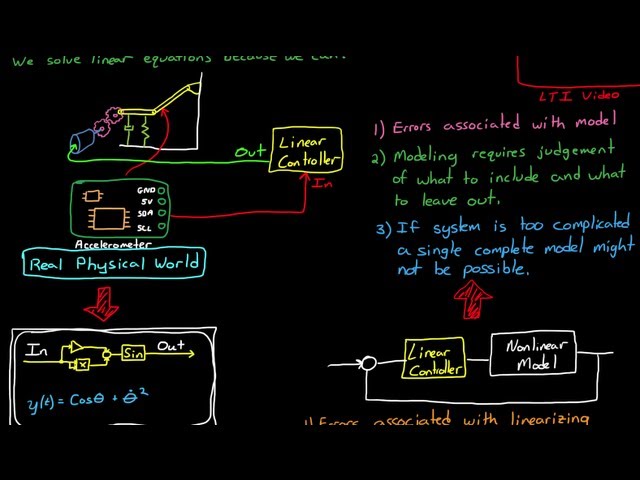 We solve linear equations because we can!
Out
Linear
Controller
In
GND
5V
SDA
SCL
Accelerometer
Real Physical World
In
x
Sin
Out
y(t) = Cosθ + θ̇²
LTI Video
1) Errors associated with model
2) Modeling requires judgement
of what to include and what
to leave out.
3) If system is too complicated
a single complete model might
not be possible.
Linear
Controller
Nonlinear
Model
1) Errors associated with linearizing